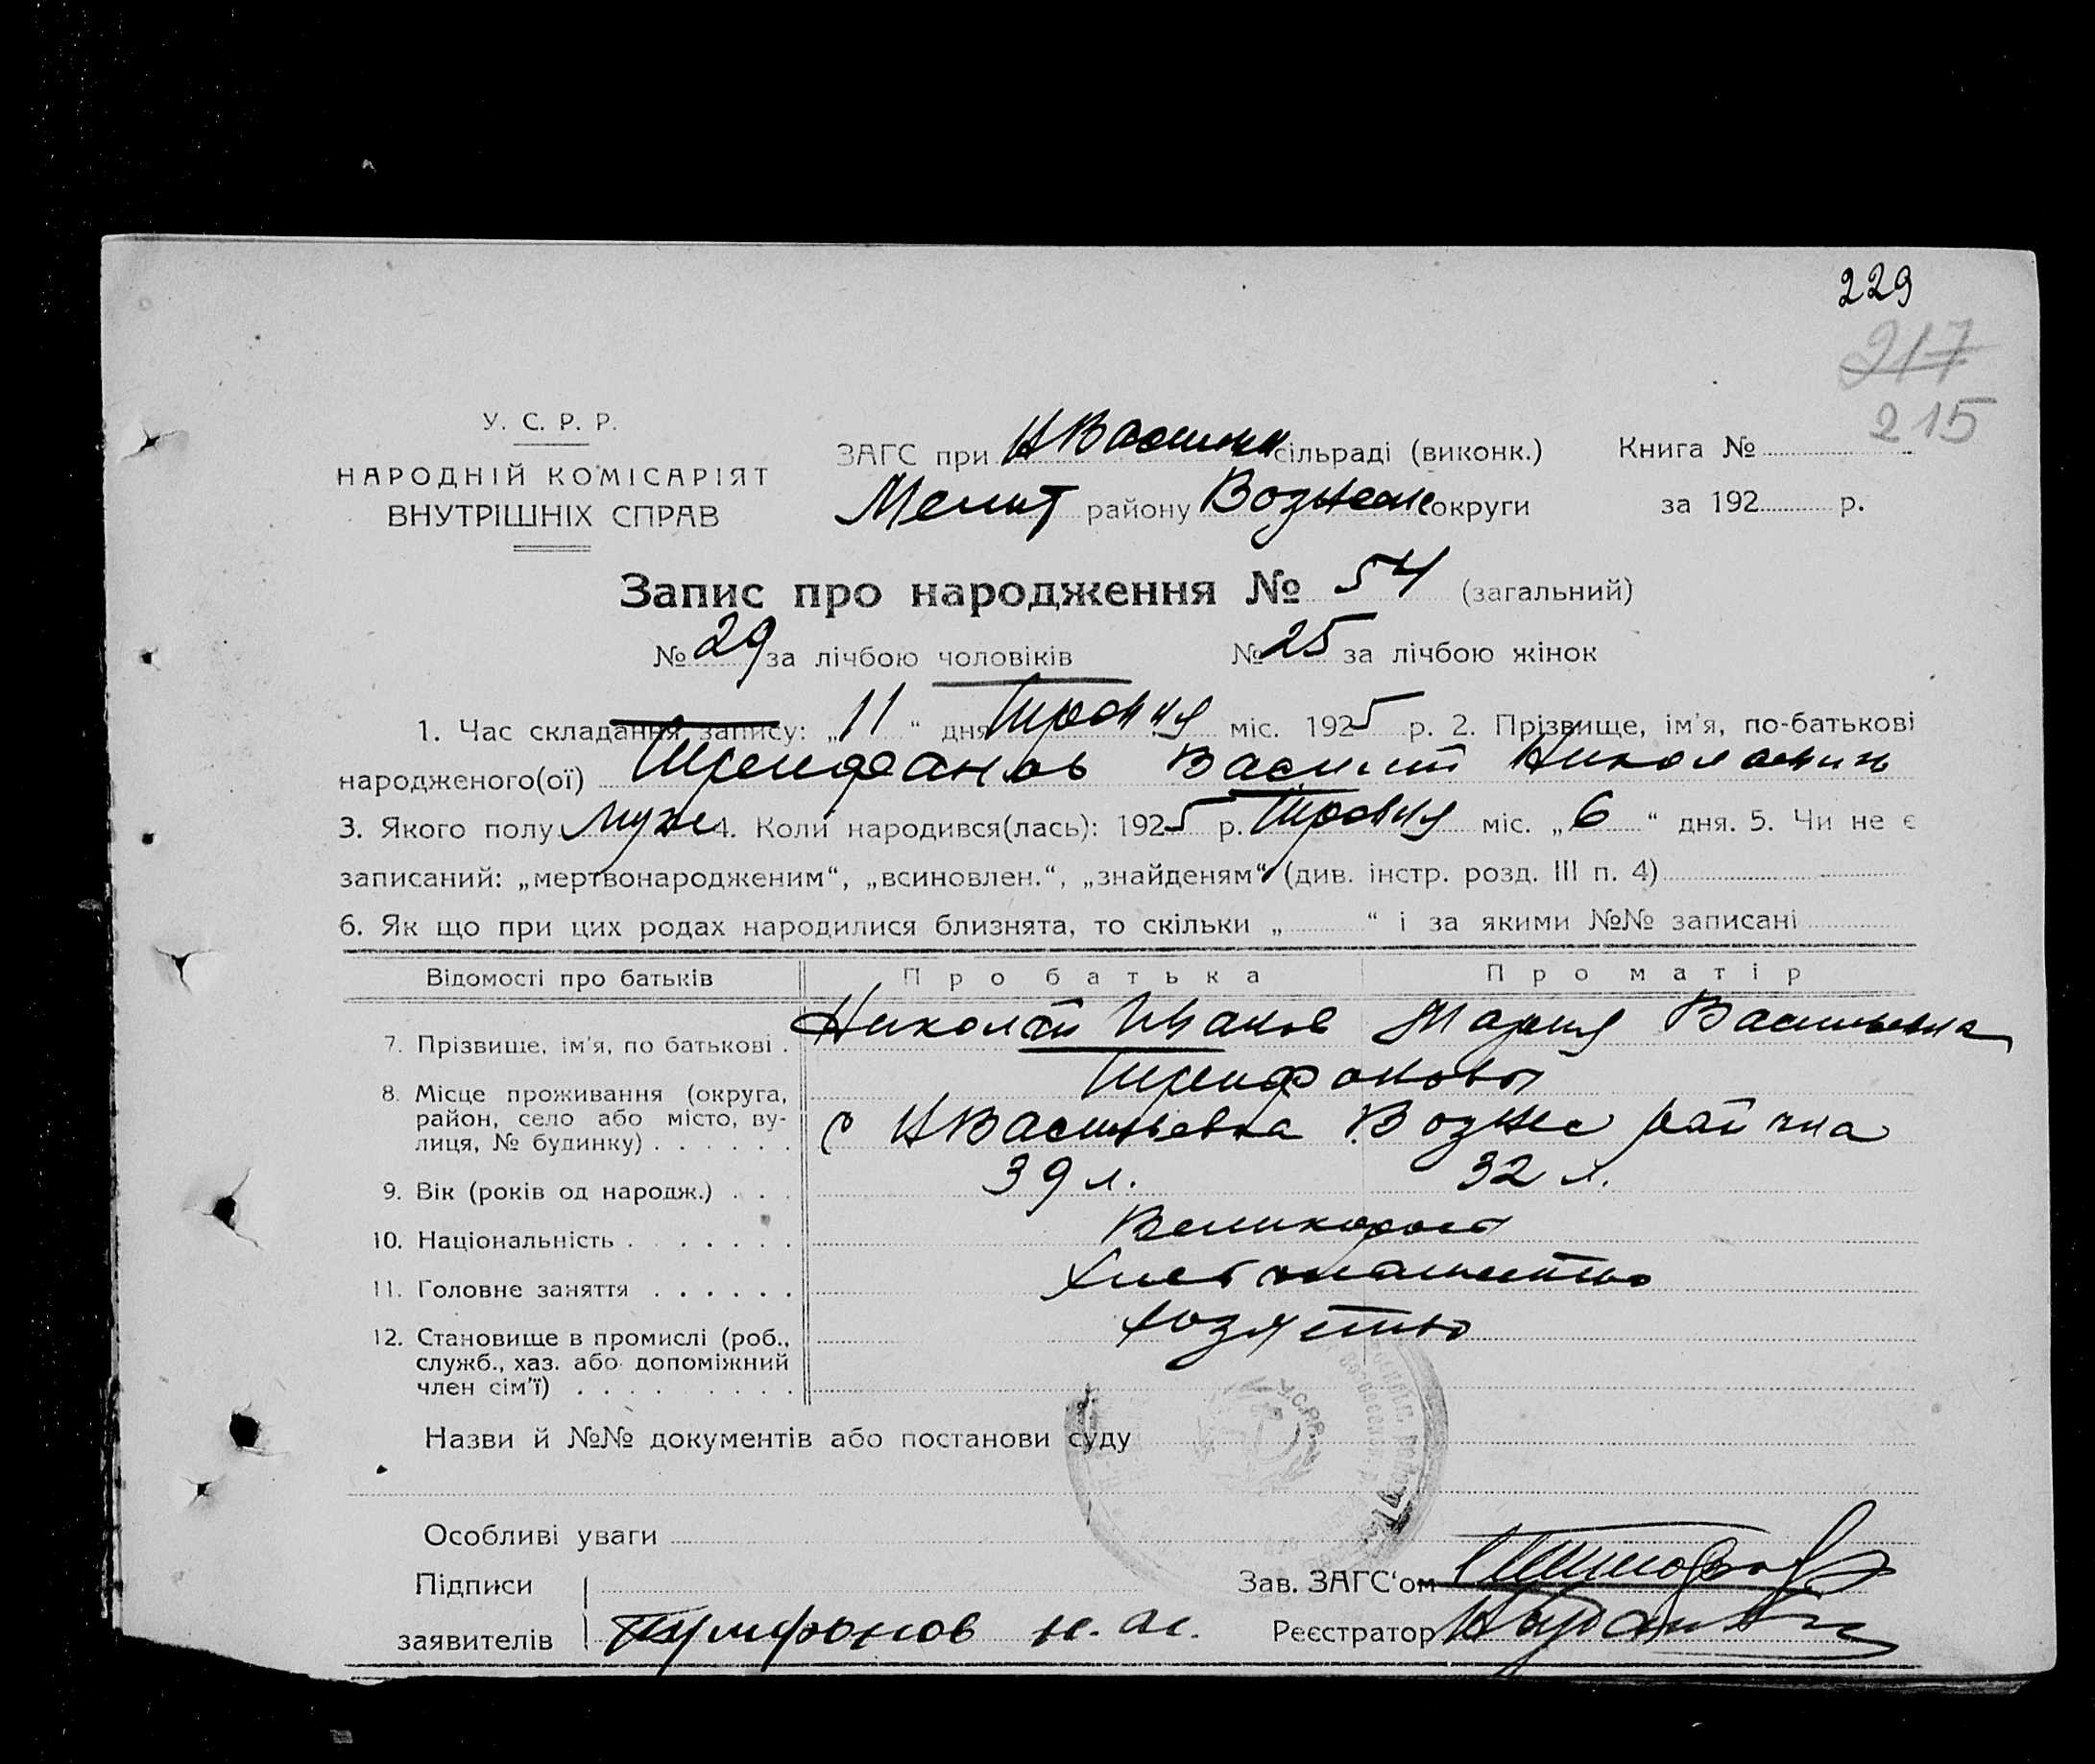 229
217
215
У. С. Р. Р.
НАРОДНІЙ КОМІСАРІЯТ
ВНУТРІШНІХ СПРАВ
ЗАГС при НВасильк сільраді (виконк.) Книга №
Мелит району Вознесен округи за 192 р.
Запис про народження № 54 (загальний)
№ 29 за лічбою чоловіків № 25 за лічбою жінок
1. Час складання запису: „11“ дня Травня міс. 1925 р. 2. Прізвище, ім'я, по-батькові
народженого(ої) Трифанов Василий Николаевич
3. Якого полу муж 4. Коли народився(лась): 1925 р. Травня міс. „6“ дня. 5. Чи не є
записаний: „мертвонародженим“, „всиновлен.“, „знайденям“ (див. інстр. розд. III п. 4)
6. Як що при цих родах народилися близнята, то скільки „ “ і за якими №№ записані
Відомості про батьків Про батька Про матір
7. Прізвище, ім'я, по батькові . Николай Иванов Мария Васильевна
Трифоновы
8. Місце проживання (округа,
район, село або місто, ву-
лиця, № будинку) . . . . . . с НВасильевка Вознес района
9. Вік (років од народж.) . . . 39 л. 32 л.
10. Національність . . . . . . . Великорос
11. Головне заняття . . . . . . Хлебопашество
12. Становище в промислі (роб.,
служб., хаз. або допоміжний
член сім'ї) . . . . . . . . .
Назви й №№ документів або постанови суду
У.С.Р.Р.
Особливі уваги
Підписи
заявителів Трифонов Н. И.
Зав. ЗАГС'ом
Реєстратор